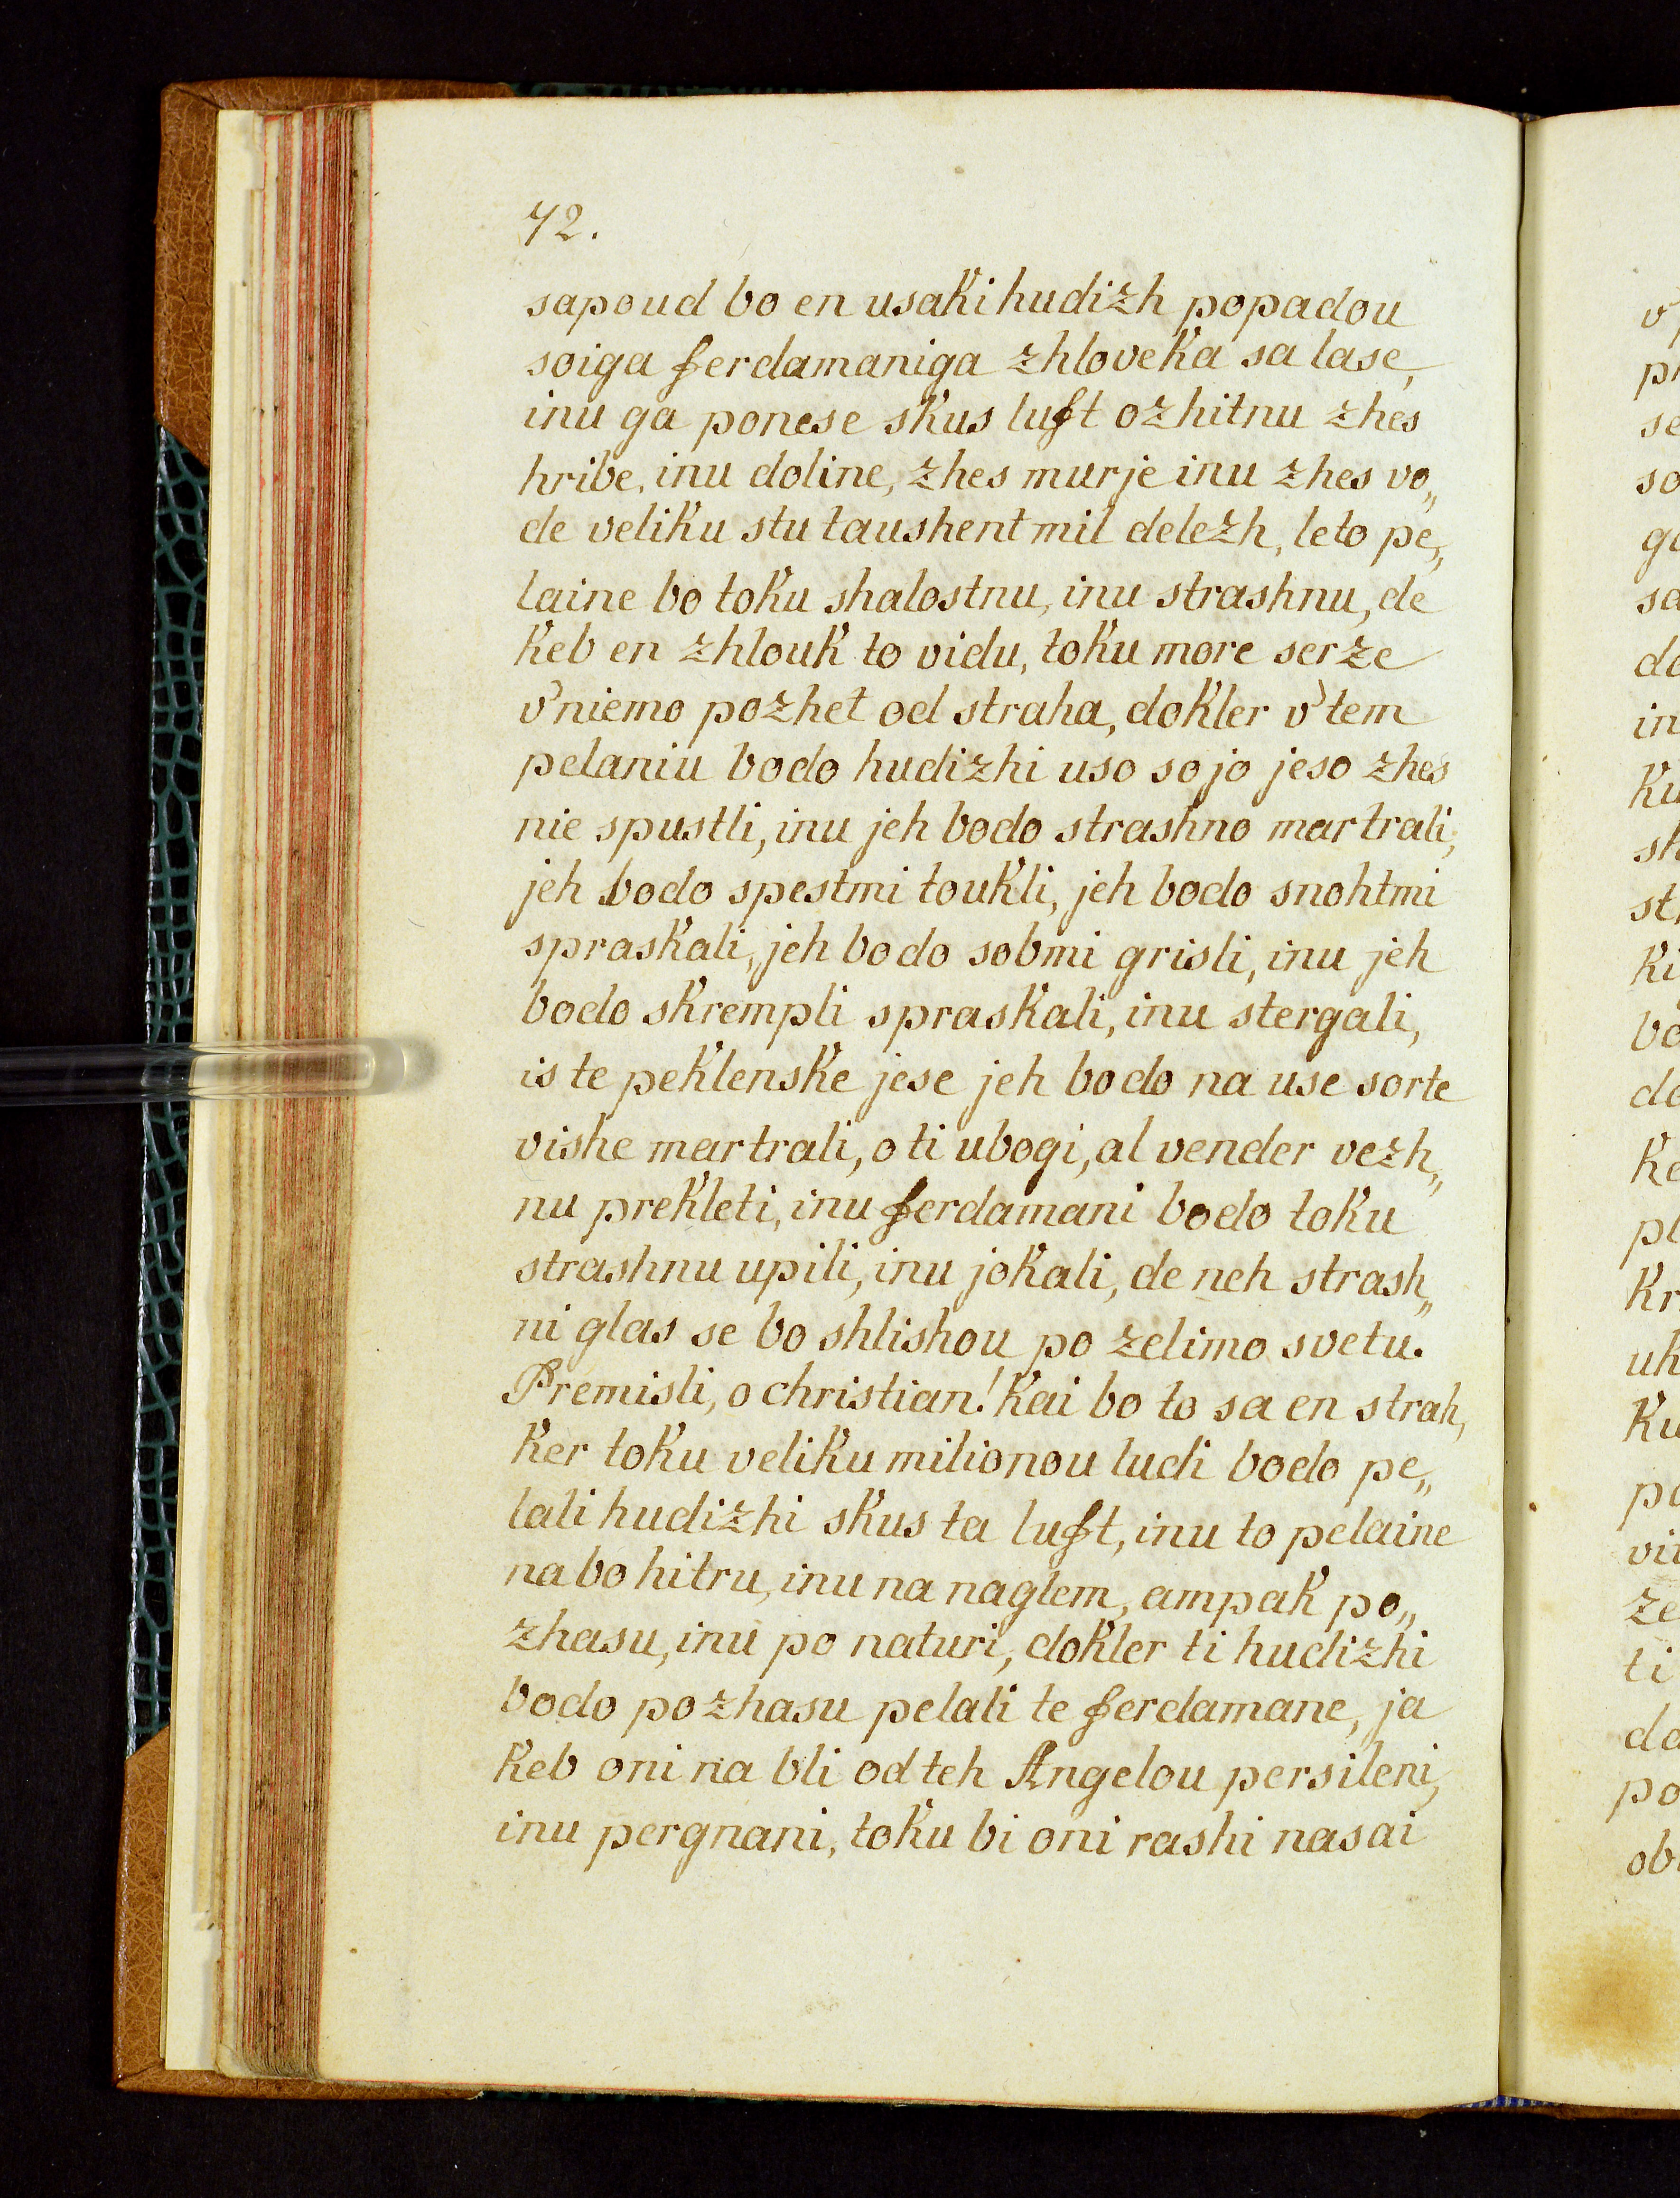 72.
sapoud bo en usaki hudizh popadou
soiga ferdamaniga zhloveka sa lase,
inu ga ponese skus luft ozhitnu zhes
hribe, inu doline, zhes murje inu zhes vo„
de veliku stu taushent mil delezh, leto pe„
laine bo toku shalostnu, inu strashnu, de
keb en zhlouk to vidu, toku more serze
v'niemo pozhet od straha, dokler v'tem
pelaniu bodo hudizhi uso sojo jeso zhes
nie spustli, inu jeh bodo strashno martrali,
jeh bodo spestmi toukli, jeh bodo snohtmi
spraskali, jeh bodo sobmi grisli, inu jeh
bodo skrempli spraskali, inu stergali,
is te peklenske jese jeh bodo na use sorte
vishe martrali, o ti ubogi, al vender vezh„
nu prekleti, inu ferdamani bodo toku
strashnu upili, inu jokali, de neh strash„
ni glas se bo shlishou po zelimo svetu.
Premisli, o christian! kai bo to sa en strah,
ker toku veliku milionou ludi bodo pe„
lali hudizhi skus ta luft, inu to pelaine
na bo hitru, inu na naglem, ampak po„
zhasu, inu po naturi, dokler ti hudizhi
bodo pozhasu pelali te ferdamane, ja
keb oni na bli od teh Angelou persileni,
inu pergnani, toku bi oni rashi nasai